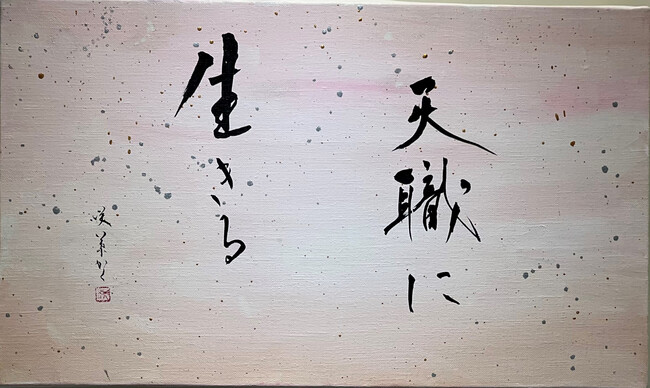 天職に
生きる
咲華かく